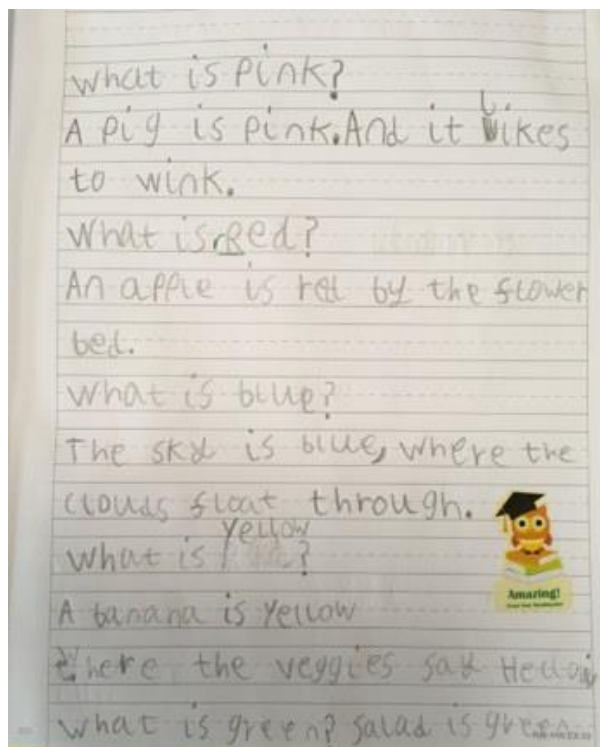 What is pink?
A pig is pink. And it likes
to wink.
What is Red?
An apple is red by the flower
bed.
What is blue?
The sky is blue, where the
clouds float through.
What is yellow?
Amazing!
A banana is yellow
where the veggies say Hello
What is green? salad is green